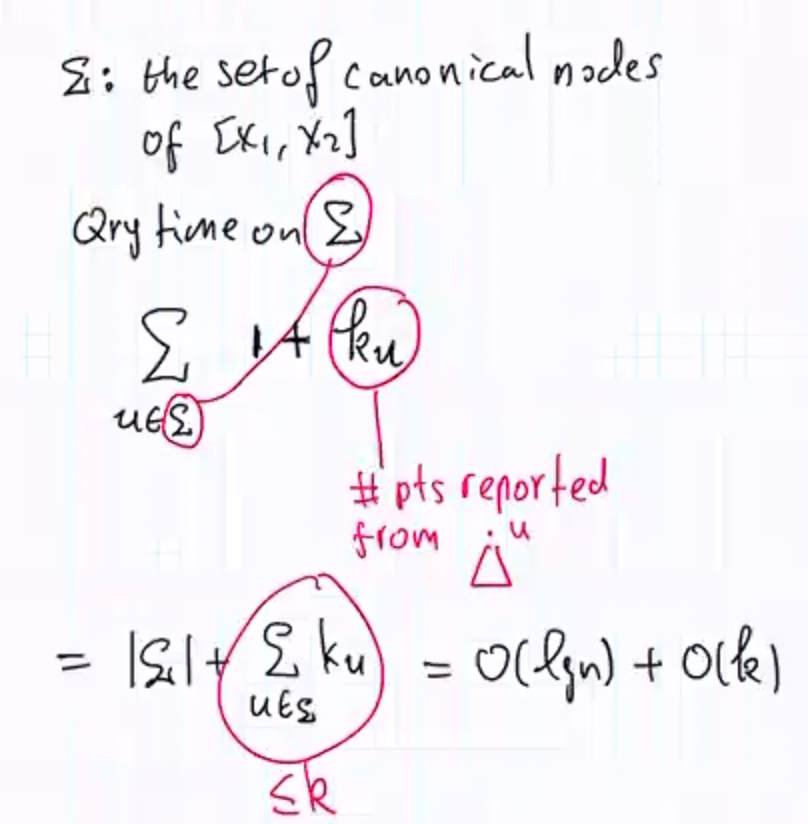 Σ: the set of canonical nodes
of [x₁, x₂]
Qry time on Σ
Σ 1 + kᵤ
u∈Σ
# pts reported
from Δ u
= |Σ| + Σ kᵤ = O(lgn) + O(k)
u∈Σ
≤k